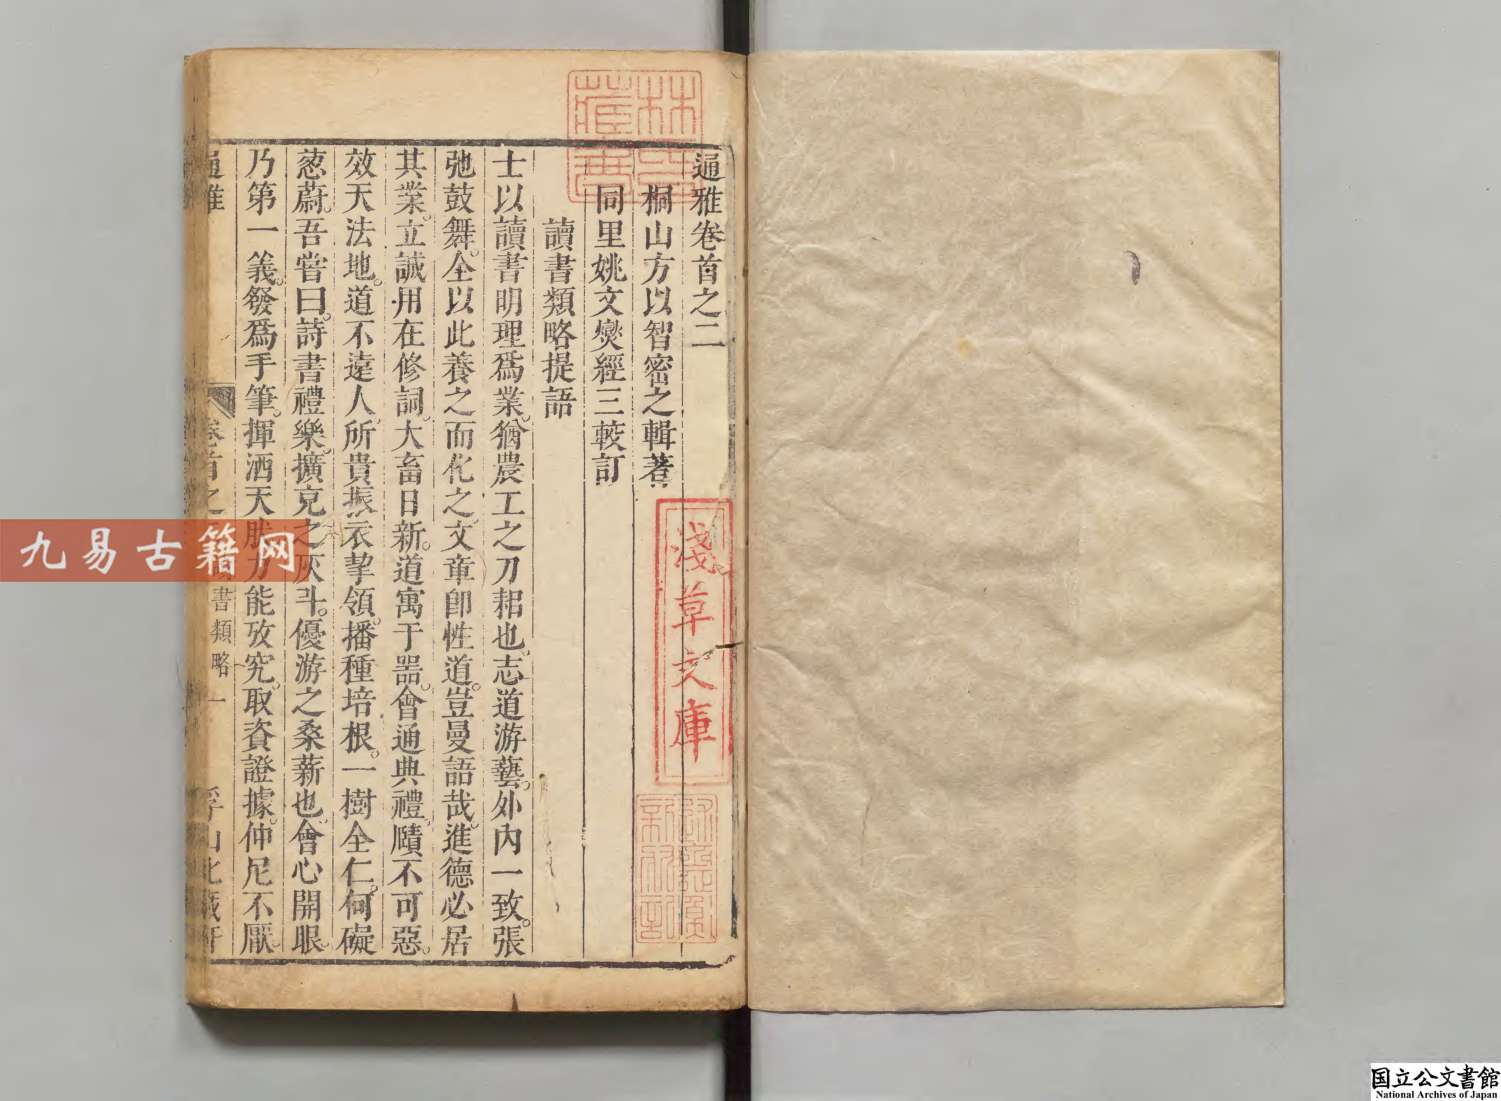 通雅卷首之二
桐山方以智密之輯著
同里姚文爕經三較訂
讀書類略提語
士以讀書明理爲業。猶農工之刀耜也。志道游藝。外內一致。張
弛鼓舞。全以此養之而化之。文章卽性道。豈曼語哉。進德必居
其業。立誠用在修詞。大畜日新。道寓于器。會通典禮。賾不可惡。
效天法地。道不遠人。所貴振衣挈領。播種培根。一樹全仁。何礙
葱蔚。吾嘗曰。詩書禮樂。擴充之灰斗。優游之桑薪也。會心開眼。
乃第一義。發爲手筆。揮洒天勝。力能攷究。取資證據。仲尼不厭。
通雅
卷首之
書類略
一
浮山此藏軒
林氏藏書
淺草文庫
九易古籍网
国立公文書館
National Archives of Japan